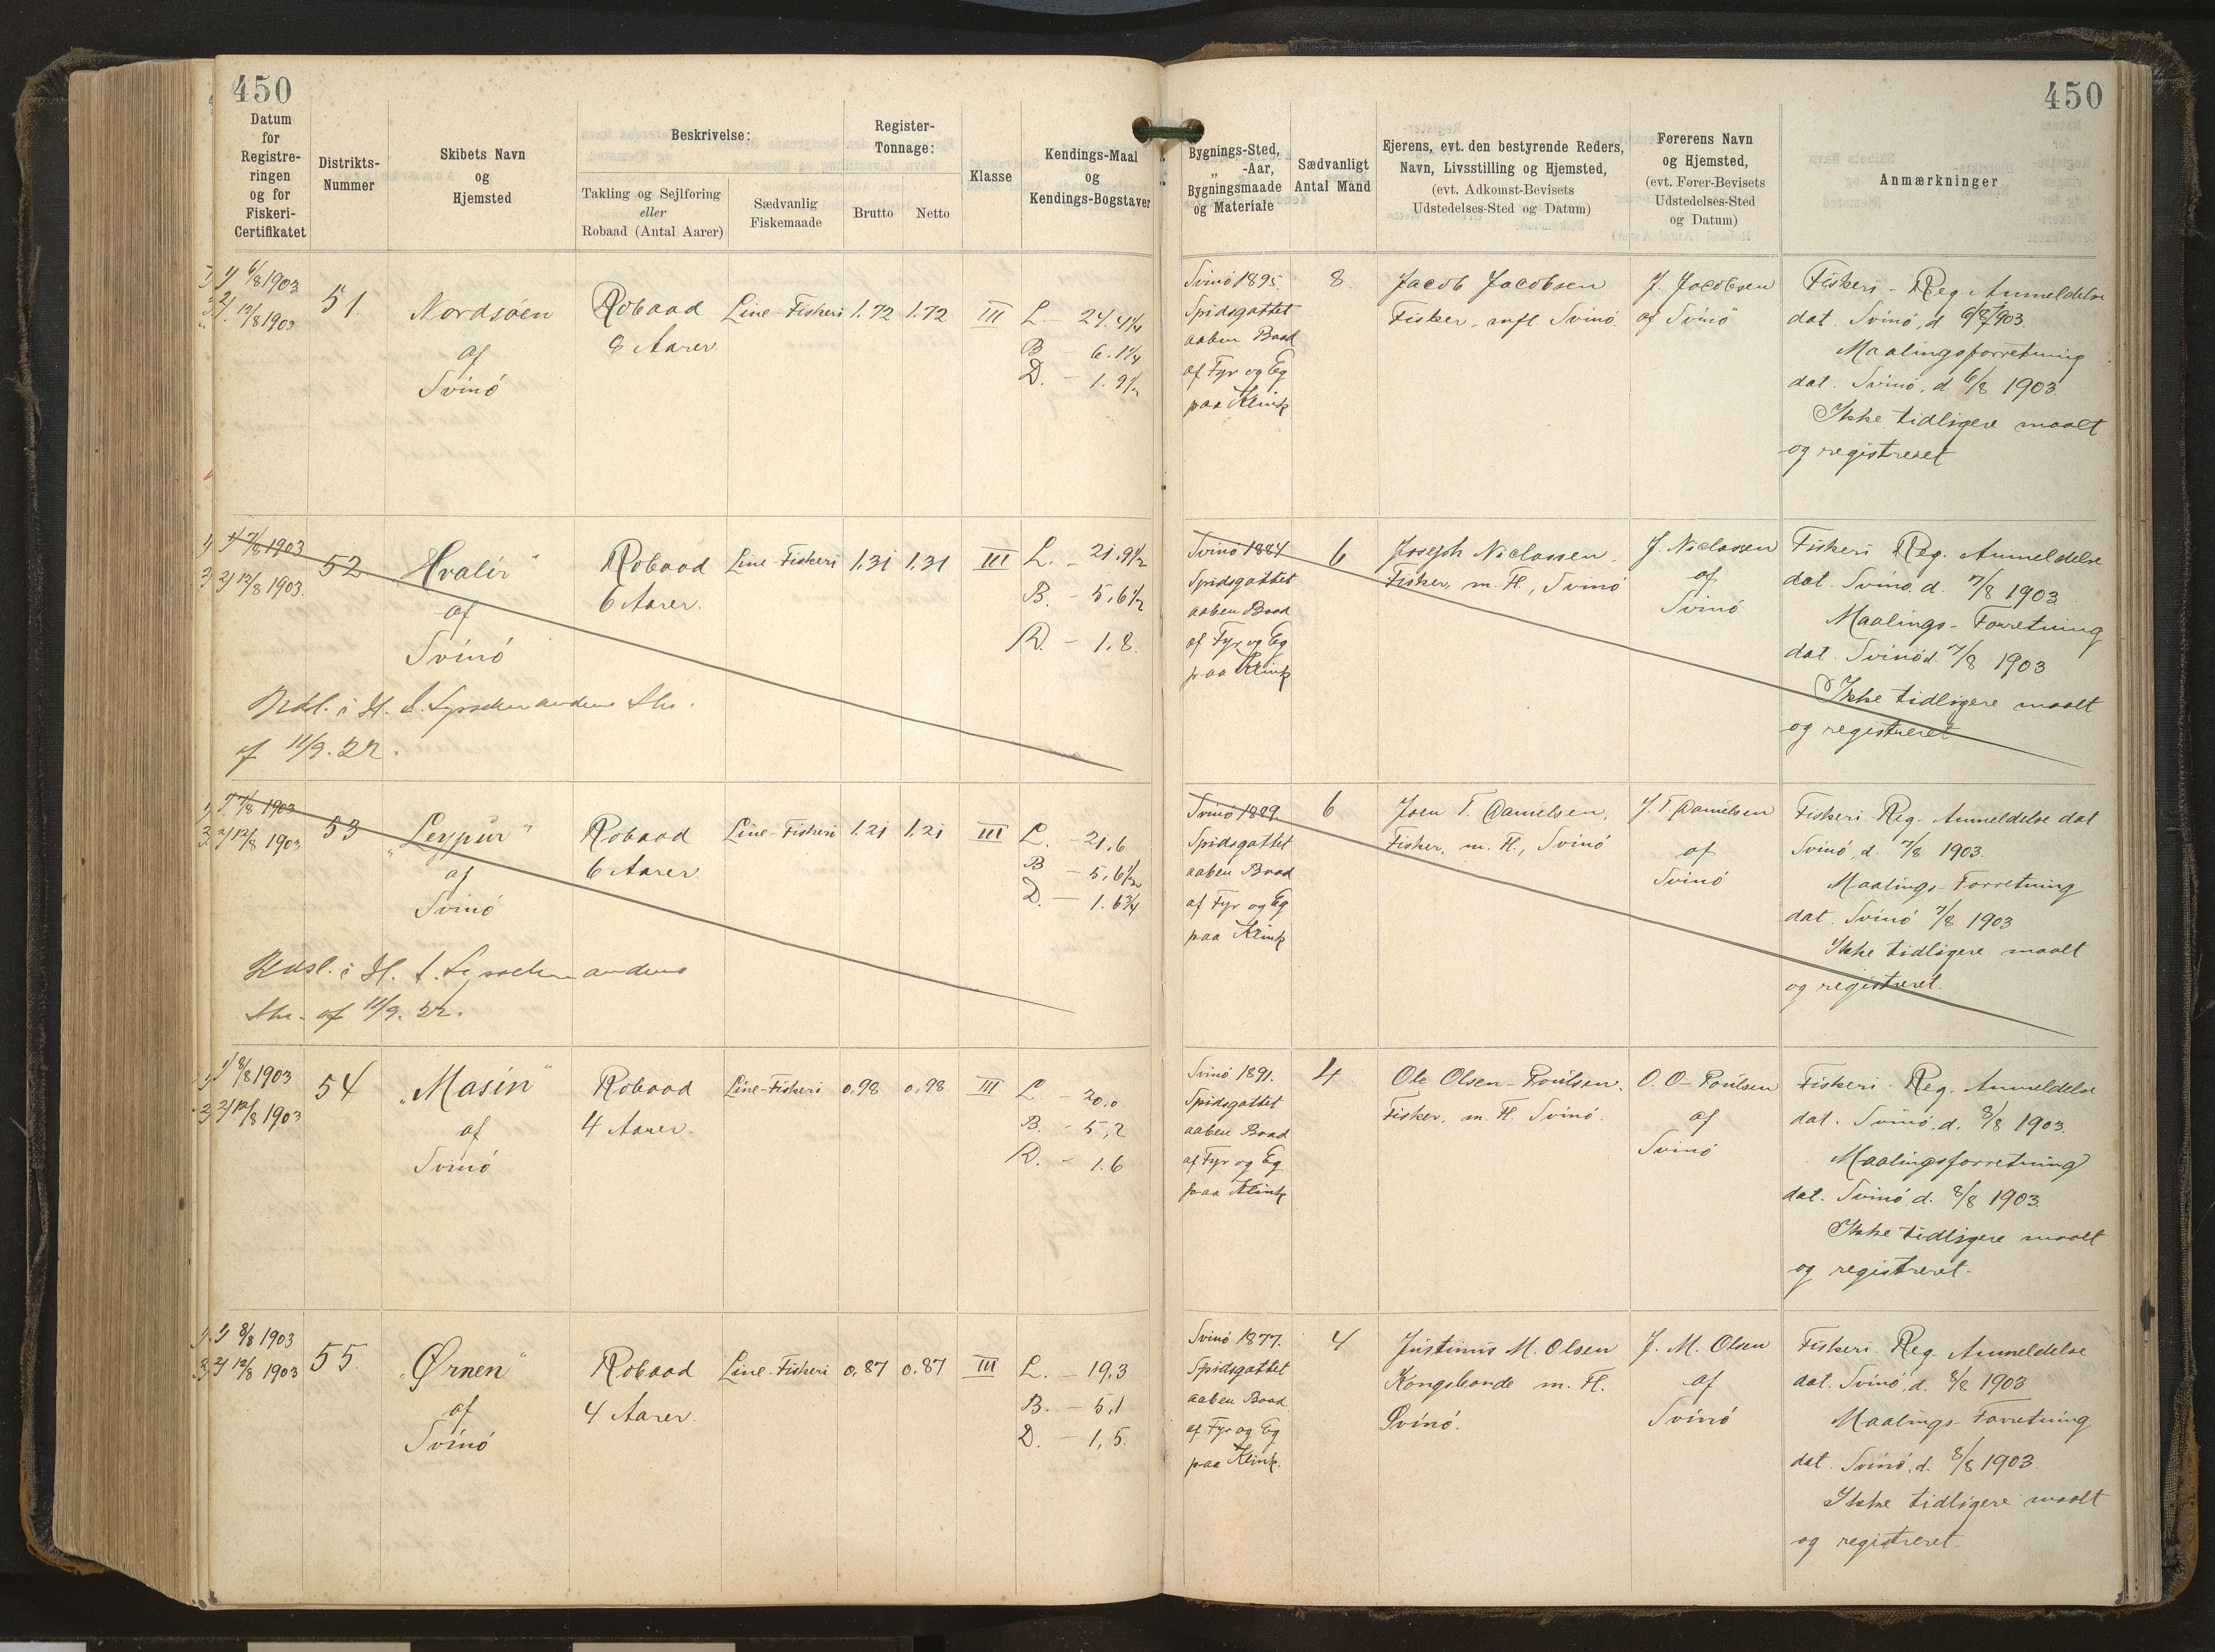 450
450
Datum
for
Registre-
ringen
og for
Fiskeri-
Certifikatet
Distrikts-
Nummer
Skibets Navn
og
Hjemsted
Beskrivelse:
Takling og Sejlføring
eller
Robaad (Antal Aarer)
Sædvanlig
Fiskemaade
Register-
Tonnage:
Brutto
Netto
Klasse
Kendings-Maal
og
Kendings-Bogstaver
Bygnings-Sted,
„ -Aar,
Bygningsmaade
og Materiale
Sædvanligt
Antal Mand
Ejerens, evt. den bestyrende Reders,
Navn, Livsstilling og Hjemsted,
(evt. Adkomst-Bevisets
Udstedelses-Sted og Datum)
Førerens Navn
og Hjemsted,
(evt. Fører-Bevisets
Udstedelses-Sted
og Datum)
Anmærkninger
1) 6/8 1903
2) 12/8 1903
51.
Nordsøen
af
Svinó
Robaad
8 Aarer
Line-Fiskeri
1.72
1.72
III
L. - 24.4 1/4
B - 6.1 1/4
D. - 1.9 1/2
Svinó 1895.
Spidsgattet
aaben Baad
af Fyr og Eg
paa Klink
8.
Jacob Jacobsen
Fisker, mfl. Svinó.
J. Jacobsen
af Svinó
Fiskeri-Reg. Anmeldelse
dat. Svinó, d. 6/8 1903.
Maalingsforretning
dat. Svinó, d. 6/8 1903
Ikke tidligere maalt
og registreret
1) 7/8 1903
2) 12/8 1903.
52
Hvalir"
af
Svinó
Robaad
6 Aarer.
Line-Fiskeri
1.31
1.31
III
L. - 21.9 1/2
B. - 5,6 1/2
D. - 1,8.
Udsl. i H. t. Sysselmandens Skr.
af 11/9. 22.
Svinó 1884
Spidsgattet
aaben Baad
af Fyr og Eg
paa Klink
6
Joseph Niclassen.
Fisker, m. Fl., Svinó
J. Niclassen
af
Svinó
Fiskeri Reg. Anmeldelse
dat. Svinó. d. 7/8 1903
Maalings-Forretning
dat. Svinó d. 7/8 1903
Ikke tidligere maalt
og registreret
1) 7/8 1903
2) 12/8 1903
53
„Leypur"
af
Svinó
Robaad
6 Aarer.
Line-Fiskeri
1.21
1.21
III
L. - 21,6
B - 5,6 1/2
D. - 1.6 3/4
Udsl. i H. t. Sysselmandens
Skr. af 11/9. 22.
Svinó 1889.
Spidsgattet
aaben Baad
af Fyr og Eg
paa Klink
6
Joen T. Danielsen,
Fisker, m. Fl., Svinó
J. T. Danielsen
af
Svinó
Fiskeri-Reg-Anmeldelse dat
Svinó, d. 7/8 1903.
Maalings-Forretning
dat. Svinó 7/8 1903
Ikke tidligere maalt
og registreret.
1) 8/8 1903
2) 12/8 1903
54
„Masin"
af
Svinó
Robaad
4 Aarer.
Line-Fiskeri
0.98
0,98
III
L - 20.0
B. - 5,2
D. - 1.6
Svinó 1891.
Spidsgattet
aaben Baad
af Fyr og Eg
paa Klink
4
Ole Olsen-Poulsen.
Fisker, m. Fl. Svinó.
O. O-Poulsen
af
Svinó
Fiskeri-Reg. Anmeldelse
dat. Svinó, d. 8/8 1903.
Maalingsforretning
dat. Svinó d. 8/8 1903.
Ikke tidligere maalt
og registreret.
1) 8/8 1903
2) 12/8 1903
55.
„Ørnen"
af
Svinó
Robaad
4 Aarer.
Line-Fiskeri
0,87
0.87
III
L. - 19,3
B. - 5,1
D. - 1,5.
Svinó 1877.
Spidsgattet
aaben Baad
af Fyr og Eg
paa Klink.
4
Justinus M. Olsen
Kongsbonde m. Fl.
Svinó.
J. M. Olsen
af
Svinó
Fiskeri. Reg. Anmeldelse
dat. Svinó, d. 8/8 1903
Maalings-Forretning
dat. Svinó, d. 8/8 1903.
Ikke tidligere maalt
og registreret.